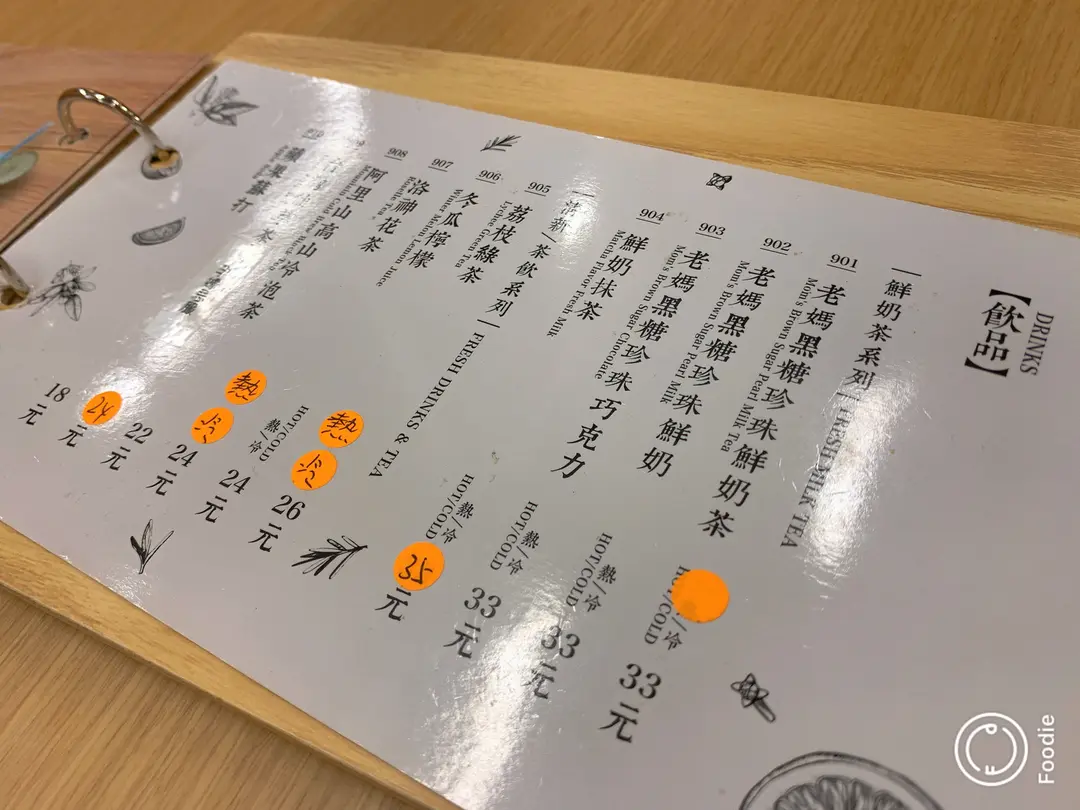 DRINKS
【飲品】
鮮奶茶系列 | FRESH MILK TEA
901
老媽黑糖珍珠鮮奶茶
Mom's Brown Sugar Pearl Milk Tea
熱//冷
HOT/COLD
33元
902
老媽黑糖珍珠鮮奶
Mom's Brown Sugar Pearl Milk
熱//冷
HOT/COLD
33元
903
老媽黑糖珍珠巧克力
Mom's Brown Sugar Chocolate
熱//冷
HOT/COLD
33元
904
鮮奶抹茶
Matcha Flavor Fresh Milk
熱//冷
HOT/COLD
35元
茶飲系列 | FRESH DRINKS & TEA
905
荔枝綠茶
Lychee Green Tea
熱
冷
26元
906
冬瓜檸檬
Winter Melon Lemon Juice
熱//冷
HOT/COLD
24元
907
洛神花茶
Roselle Tea
熱
冷
24元
908
阿里山高山冷泡茶
22元
24元
蘋果蘇打
18元
Foodie